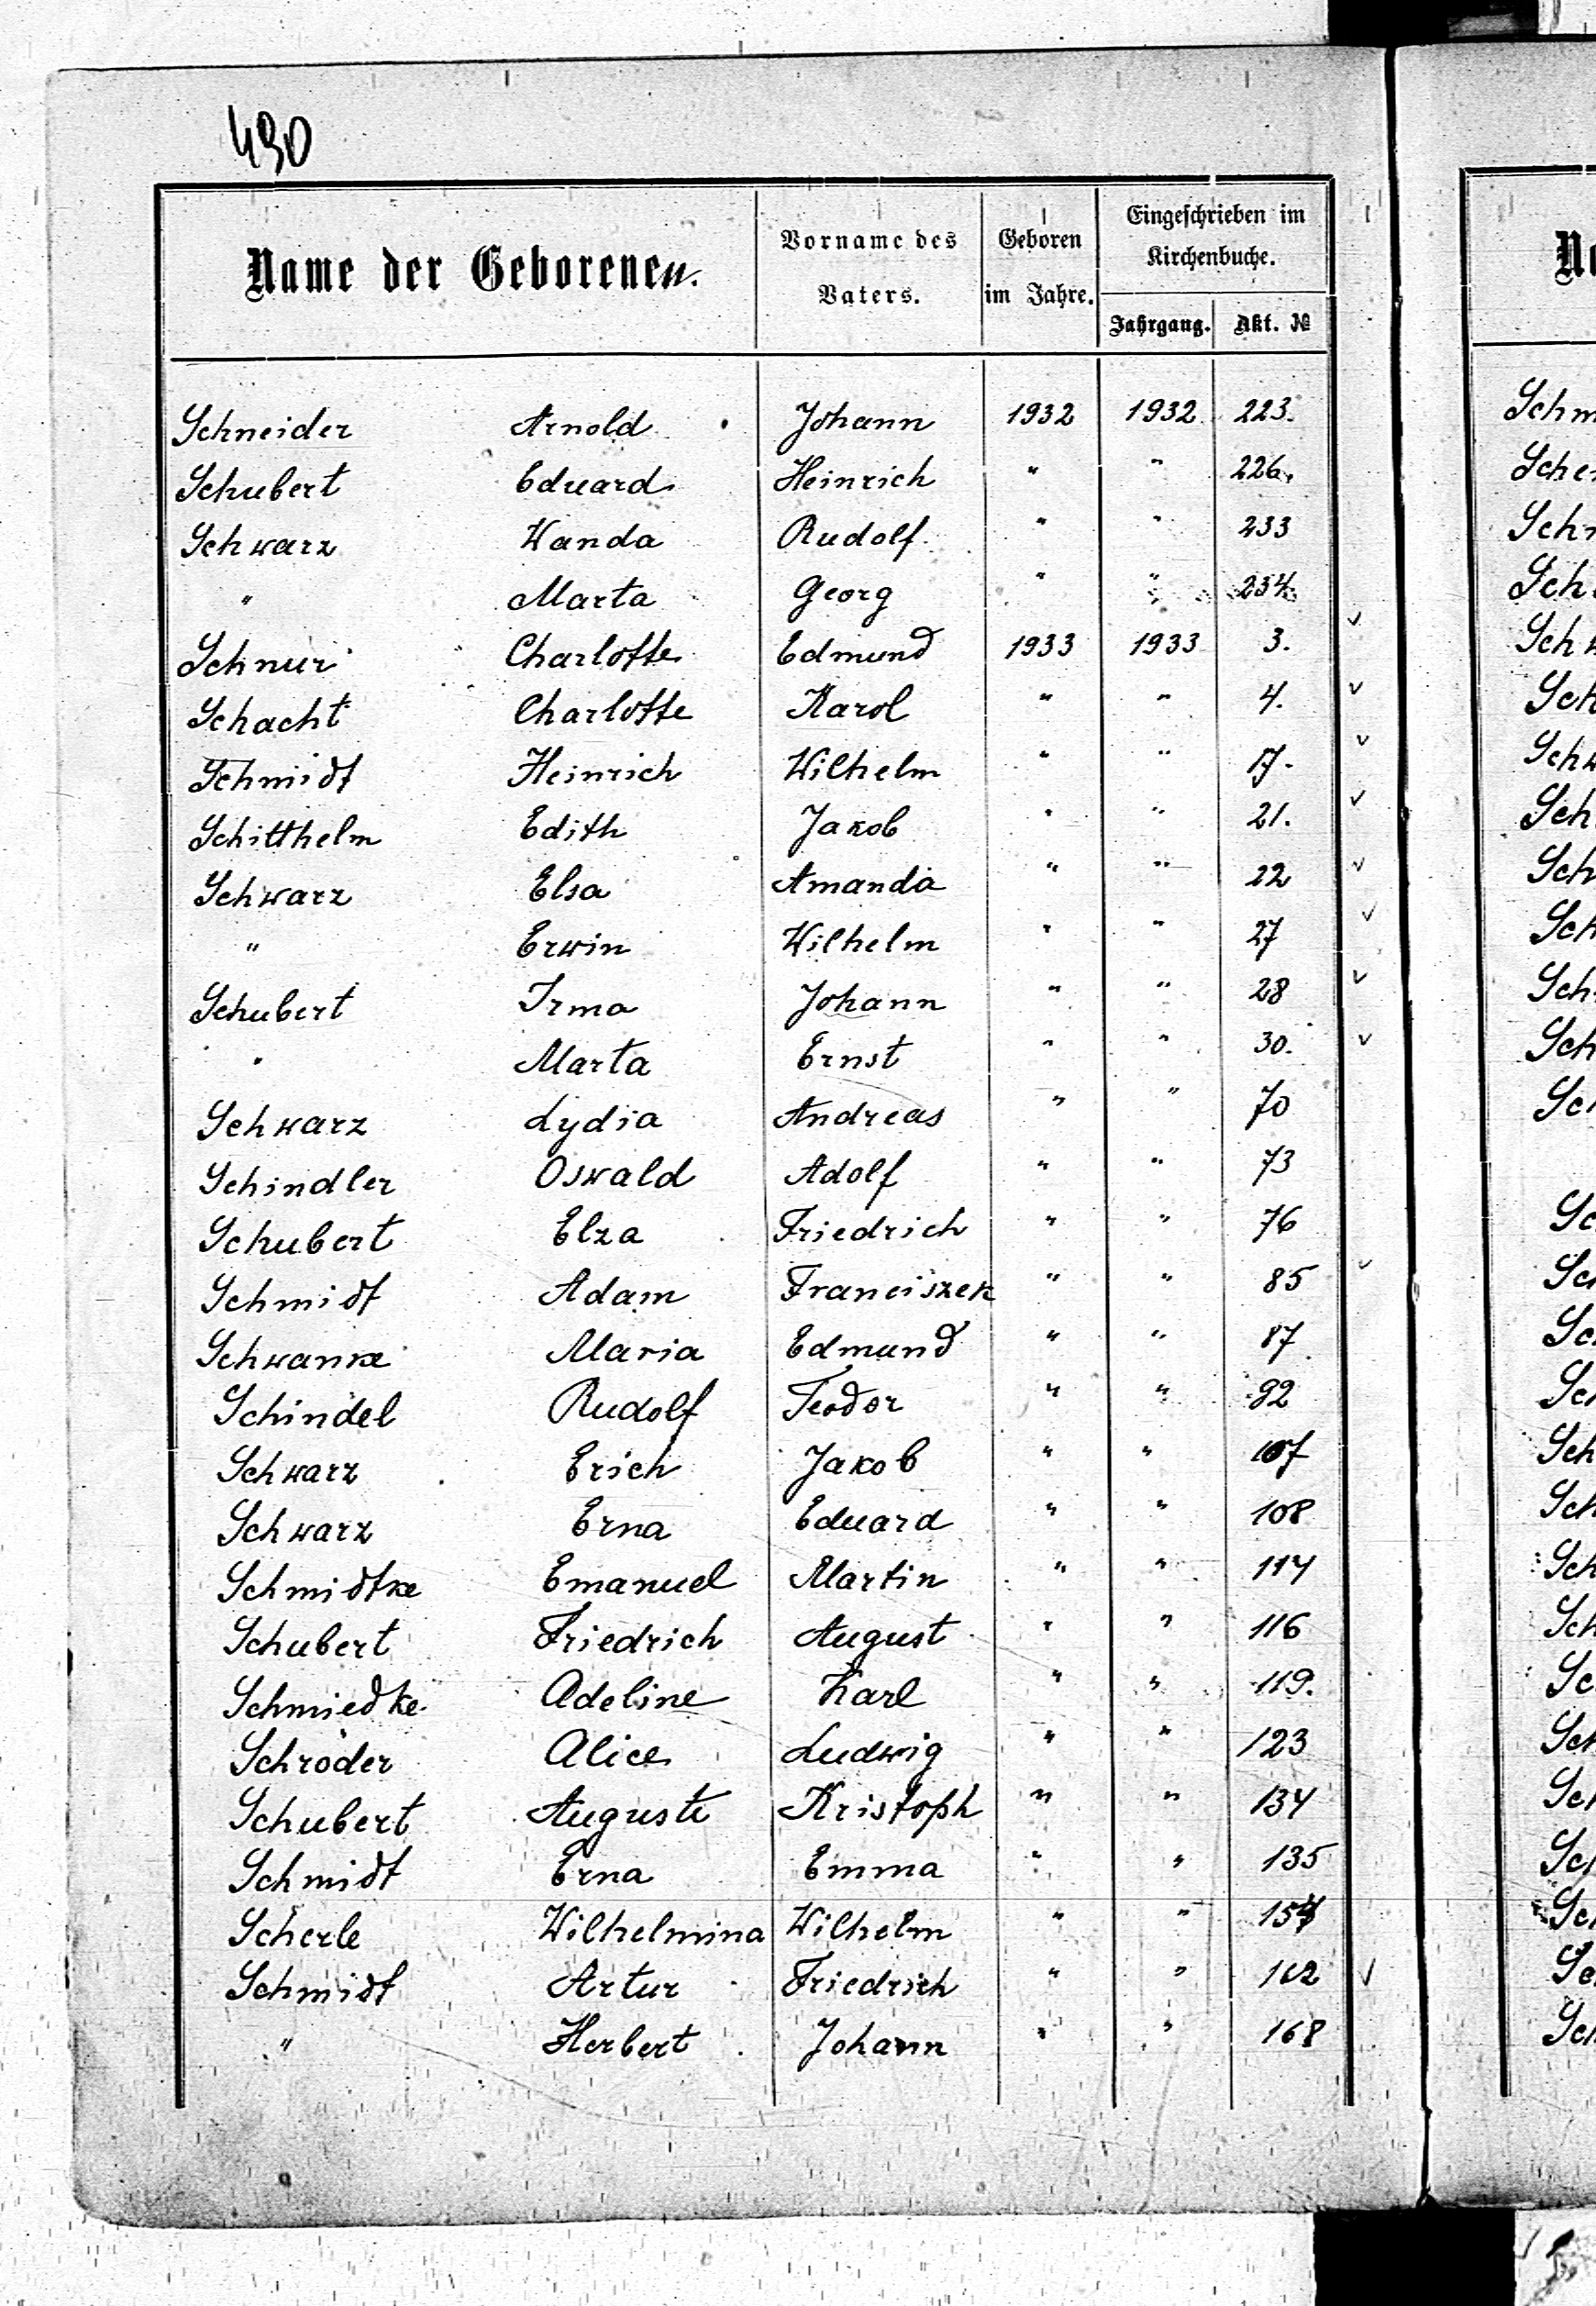 430
Name der Geborenen.
Vorname des Vaters.
Geboren im Jahre.
Eingeschrieben im Kirchenbuche.
Jahrgang. Akt. №
Schneider Arnold Johann 1932 1932 223.
Schubert Eduard Heinrich " " 226.
Schwarz Wanda Rudolf " " 233
" Marta Georg " " 234.
Schnur Charlotte Edmund 1933 1933 3. v
Schacht Charlotte Karol " " 4. v
Schmidt Heinrich Wilhelm " " 17. v
Schitthelm Edith Jakob " " 21. v
Schwarz Elsa Amanda " " 22 v
" Erwin Wilhelm " " 27 v
Schubert Irma Johann " " 28 v
" Marta Ernst " " 30. v
Schwarz Lydia Andreas " " 70
Schindler Oswald Adolf " " 73
Schubert Elza Friedrich " " 76
Schmidt Adam Franciszek " " 85 v
Schwanke Maria Edmund " " 87
Schindel Rudolf Teodor " " 92
Schwarz Erich Jakob " " 107
Schwarz Erna Eduard " " 108
Schmidtke Emanuel Martin " " 114
Schubert Friedrich August " " 116
Schmiedke Adeline Karl " " 119.
Schröder Alice Ludwig " " 123
Schubert Auguste Kristoph " " 134
Schmidt Erna Emma " " 135
Scherle Wilhelmina Wilhelm " "
Schmidt Artur Friedrich " " 162 v
" Herbert Johann " " 168